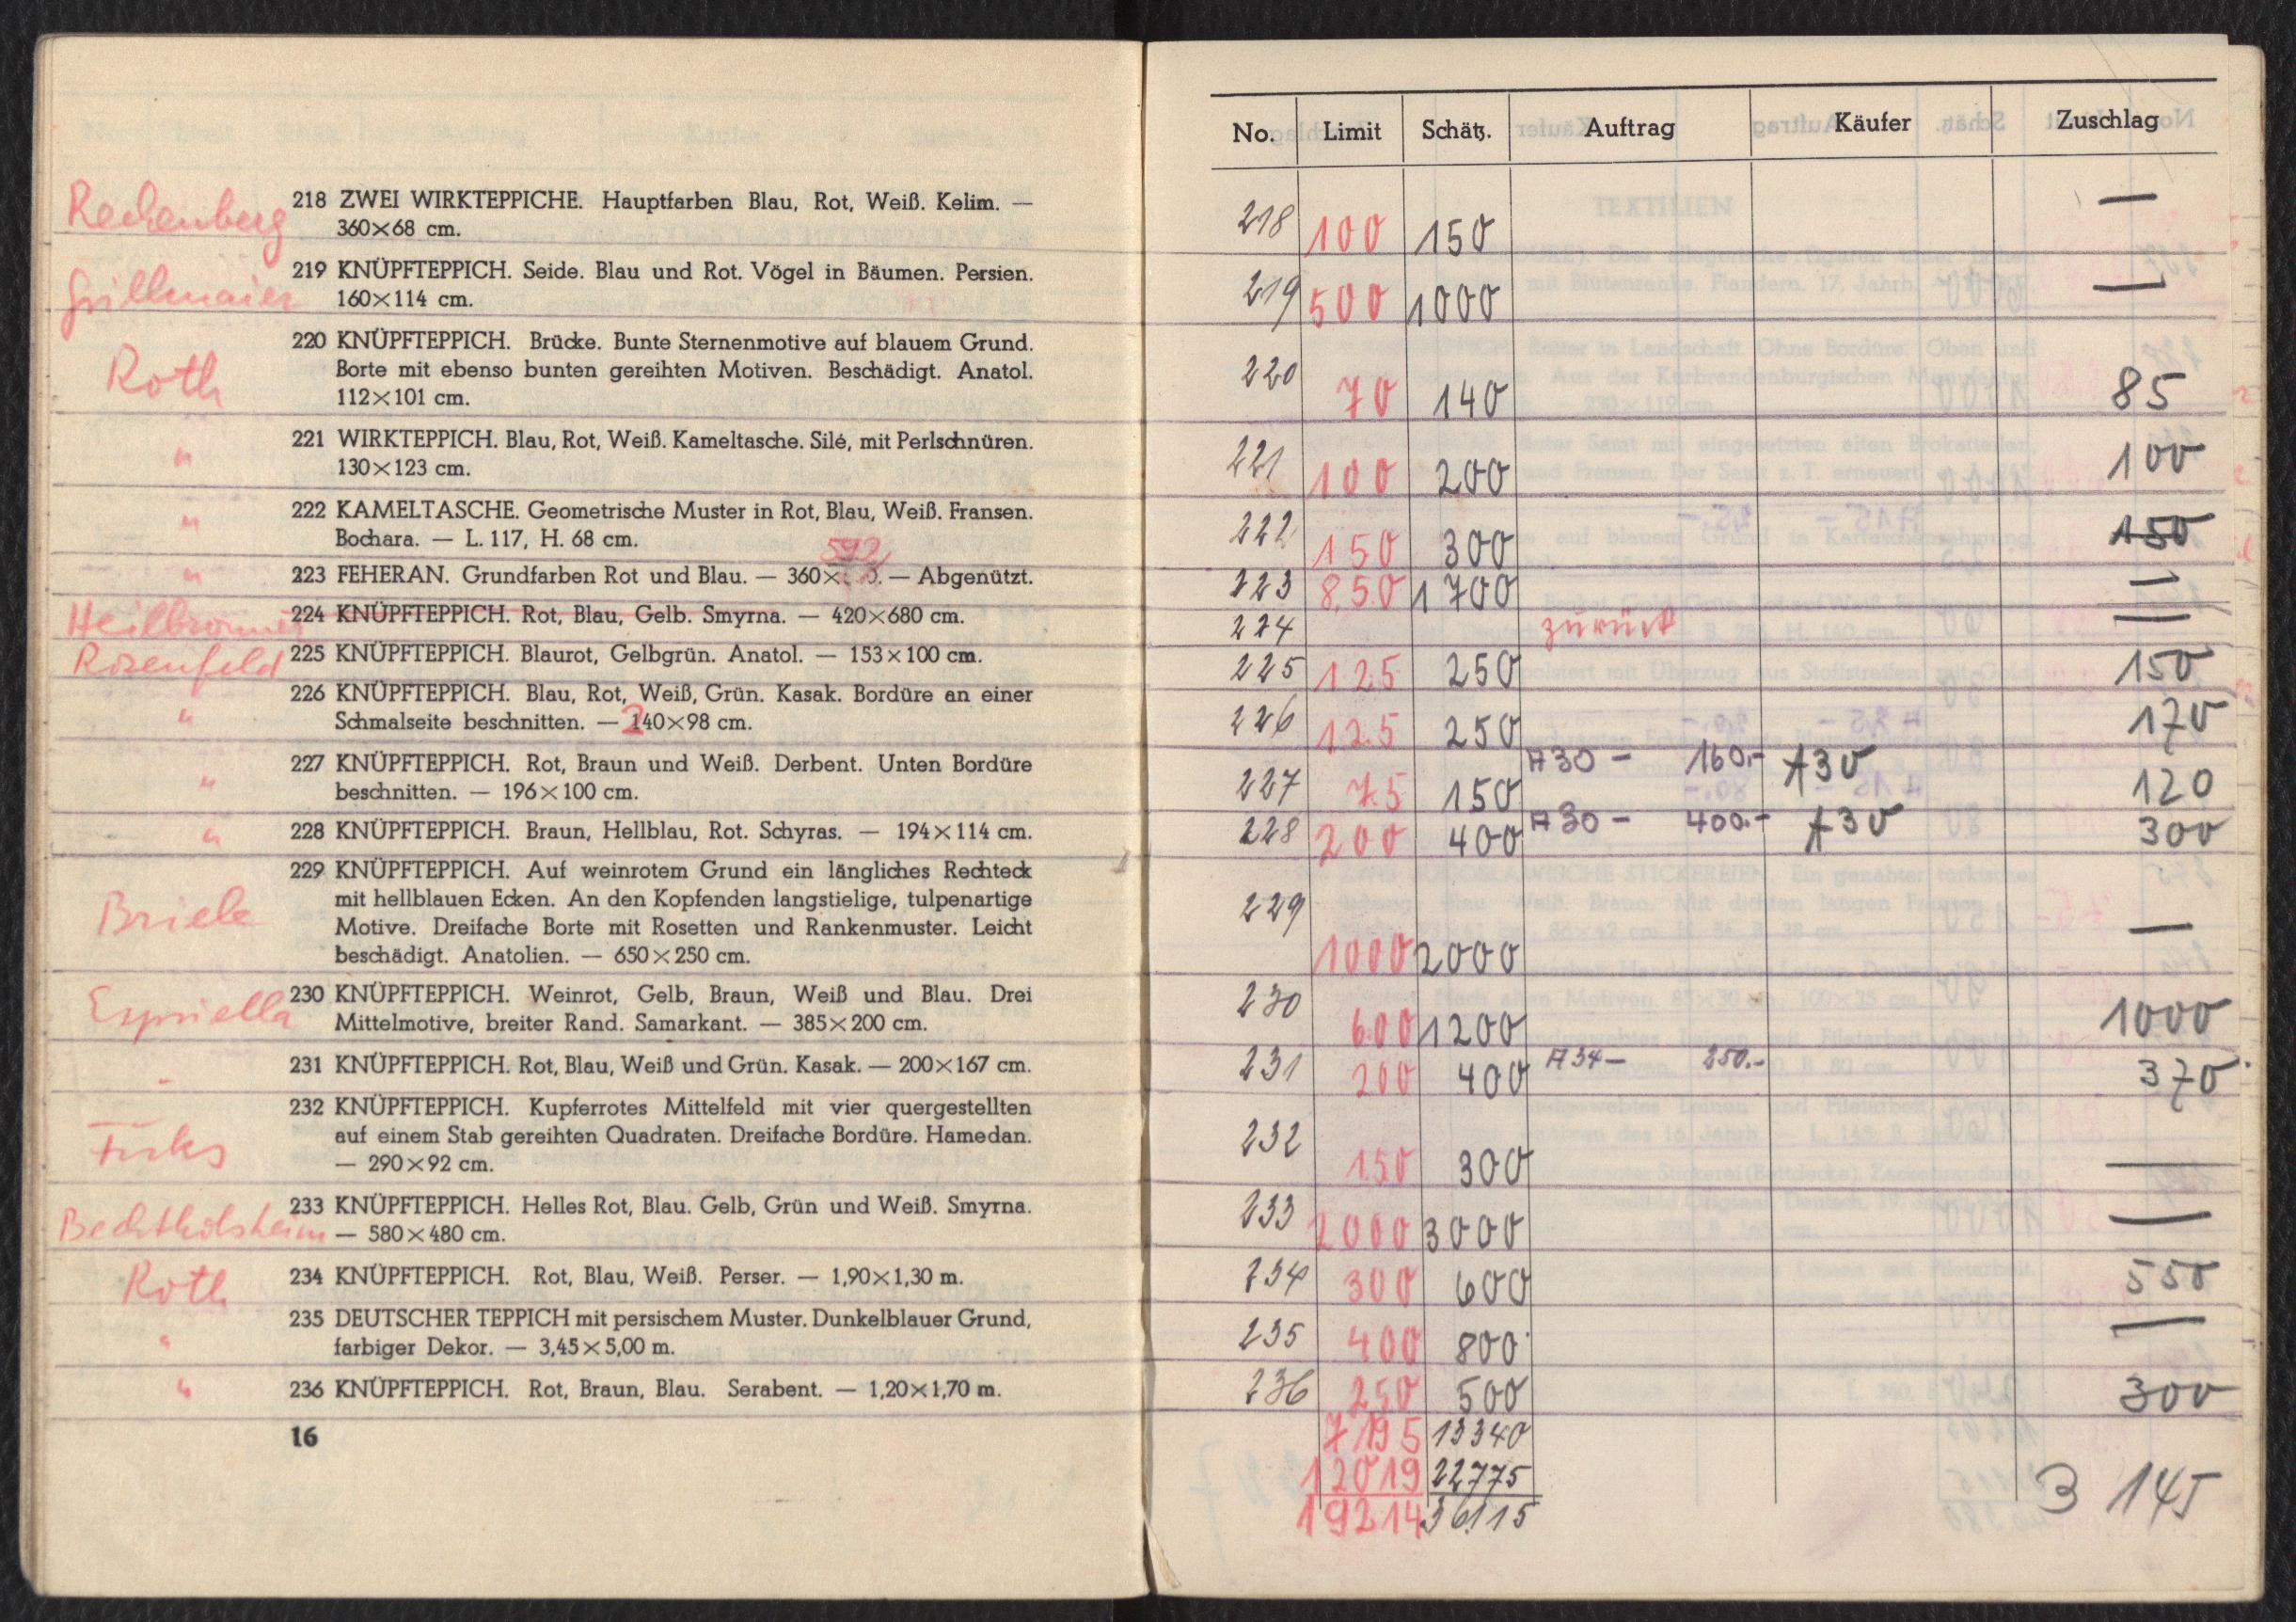 Rechenberg 218 ZWEI WIRKTEPPICHE. Hauptfarben Blau, Rot, Weiß. Kelim. —
360×68 cm.
Grillmaier 219 KNÜPFTEPPICH. Seide. Blau und Rot. Vögel in Bäumen. Persien.
160×114 cm.
220 KNÜPFTEPPICH. Brücke. Bunte Sternenmotive auf blauem Grund.
Roth Borte mit ebenso bunten gereihten Motiven. Beschädigt. Anatol.
112×101 cm.
" 221 WIRKTEPPICH. Blau, Rot, Weiß. Kameltasche. Silé, mit Perlschnüren.
130×123 cm.
" 222 KAMELTASCHE. Geometrische Muster in Rot, Blau, Weiß. Fransen.
Bochara. — L. 117, H. 68 cm.
592
" 223 FEHERAN. Grundfarben Rot und Blau. — 360× — Abgenützt.
Heilbronner 224 KNÜPFTEPPICH. Rot, Blau, Gelb. Smyrna. — 420×680 cm.
Rosenfeld 225 KNÜPFTEPPICH. Blaurot, Gelbgrün. Anatol. — 153×100 cm.
" 226 KNÜPFTEPPICH. Blau, Rot, Weiß, Grün. Kasak. Bordüre an einer
Schmalseite beschnitten. — 240×98 cm.
" 227 KNÜPFTEPPICH. Rot, Braun und Weiß. Derbent. Unten Bordüre
beschnitten. — 196×100 cm.
" 228 KNÜPFTEPPICH. Braun, Hellblau, Rot. Schyras. — 194×114 cm.
229 KNÜPFTEPPICH. Auf weinrotem Grund ein längliches Rechteck
Briele mit hellblauen Ecken. An den Kopfenden langstielige, tulpenartige
Motive. Dreifache Borte mit Rosetten und Rankenmuster. Leicht
beschädigt. Anatolien. — 650×250 cm.
Espriella 230 KNÜPFTEPPICH. Weinrot, Gelb, Braun, Weiß und Blau. Drei
Mittelmotive, breiter Rand. Samarkant. — 385×200 cm.
" 231 KNÜPFTEPPICH. Rot, Blau, Weiß und Grün. Kasak. — 200×167 cm.
232 KNÜPFTEPPICH. Kupferrotes Mittelfeld mit vier quergestellten
auf einem Stab gereihten Quadraten. Dreifache Bordüre. Hamedan.
— 290×92 cm.
Bechtholsheim 233 KNÜPFTEPPICH. Helles Rot, Blau. Gelb, Grün und Weiß. Smyrna.
— 580×480 cm.
Roth 234 KNÜPFTEPPICH. Rot, Blau, Weiß. Perser. — 1,90×1,30 m.
" 235 DEUTSCHER TEPPICH mit persischem Muster. Dunkelblauer Grund,
farbiger Dekor. — 3,45×5,00 m.
" 236 KNÜPFTEPPICH. Rot, Braun, Blau. Serabent. — 1,20×1,70 m.
16
No. Limit Schätz. Auftrag Käufer Zuschlag
218 100 150 —
219 500 1000 —
220 70 140 85
221 100 200 100
222 150 300 150
223 850 1700 —
224 zurück —
225 125 250 150
226 125 250 170
227 75 150 A30 – 160.– A30 120
228 200 400 A30 – 400.– A30 300
229 1000 2000 —
230 600 1200 1000
231 200 400 A34 – 250.– 370
232 150 300 —
233 2000 3000 —
234 300 600 550
235 400 800 —
236 250 500 300
7195 13340
12019 22775 3145
19214 36115